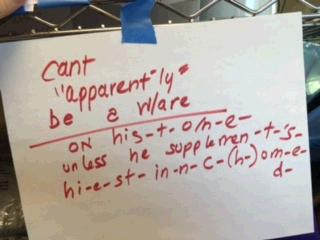 Cant
"apparent-ly"
be a w/are
ON his-t-o/n-e-
unless he supplemen-t-'s-
hi-e-st-in-n-c-(h-)om-e-
d-